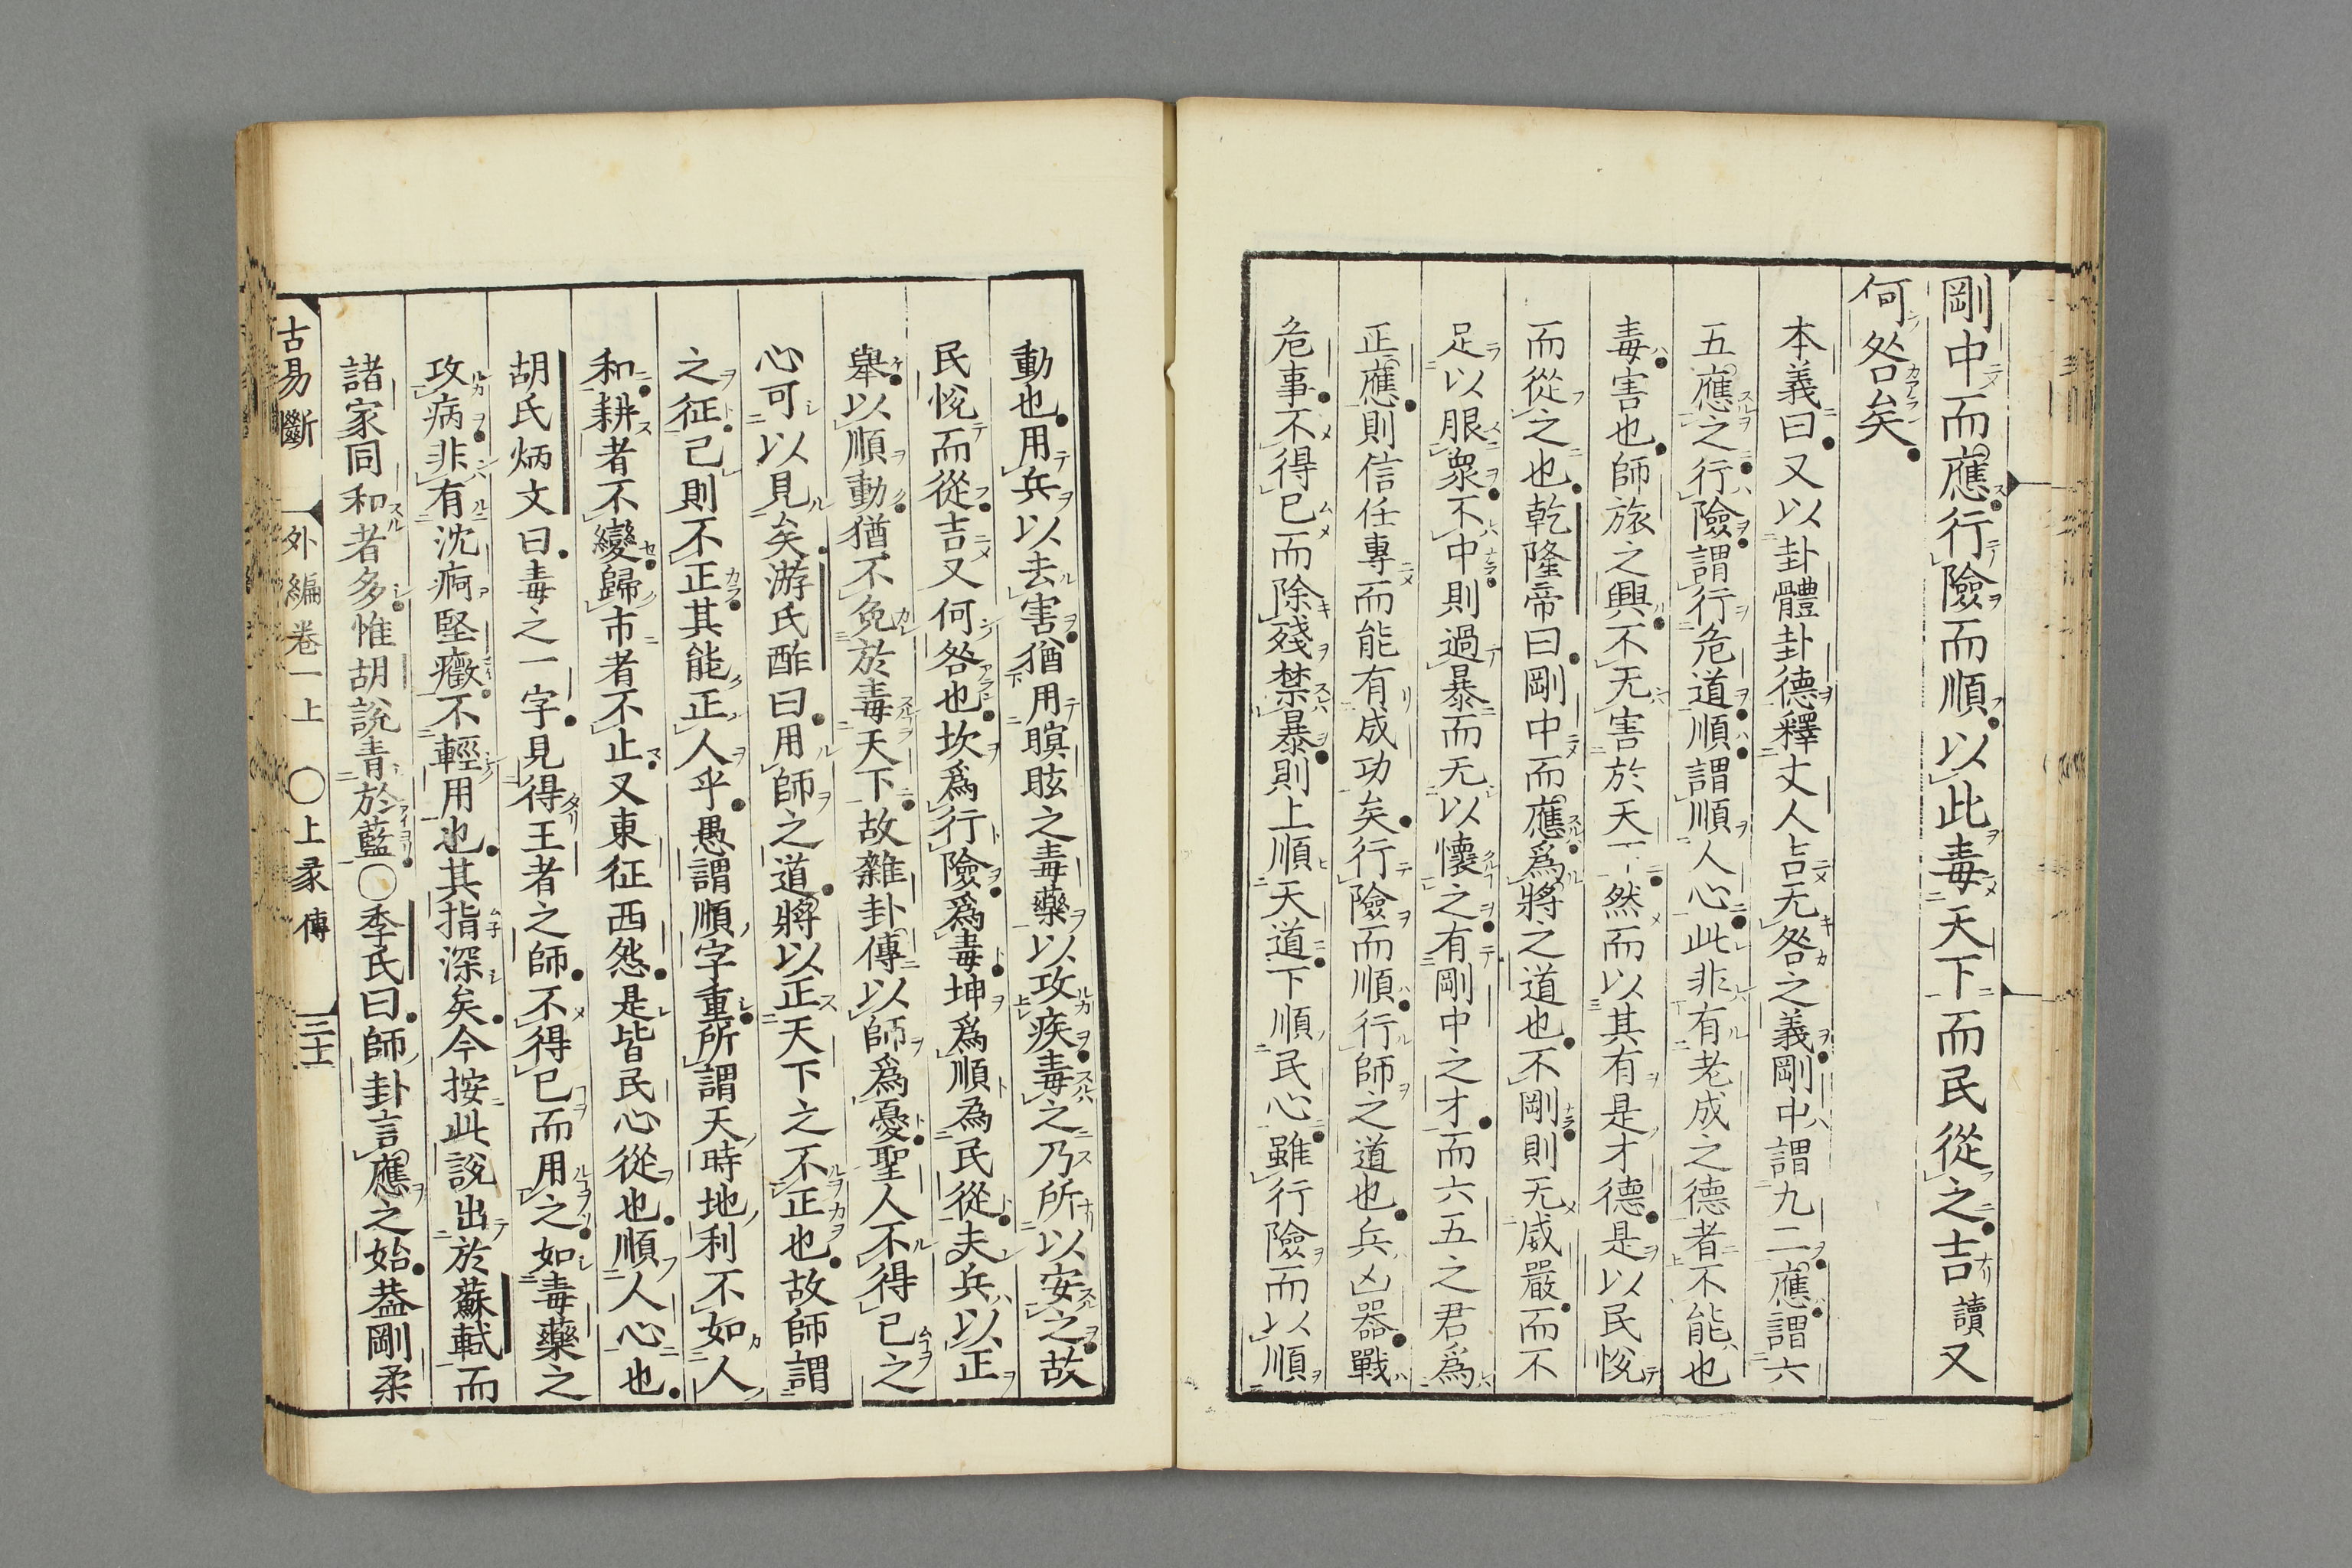 剛中而應行險而順以此毒天下而民從之吉讀又
何咎矣
本義曰又以卦體卦德釋丈人吉无咎之義剛中謂九二應謂六
五應之行險謂行危道順謂順人心此非有老成之德者不能也
毒害也師旅之興不无害於天下然而以其有是才德是以民悅
而從之也乾隆帝曰剛中而應爲將之道也不剛則无威嚴而不
足以服衆不中則過暴而无以懷之有剛中之才而六五之君爲
正應則信任專而能有成功矣行險而順行師之道也兵凶器戰
危事不得已而除殘禁暴則上順天道下順民心雖行險而以順
動也用兵以去害猶用瞑眩之毒藥以攻疾毒之乃所以安之故
民悅而從吉又何咎也坎爲行險爲毒坤爲順為民從夫兵以正
舉以順動猶不免於毒天下故雜卦傳以師爲憂聖人不得已之
心可以見矣游氏酢曰用師之道將以正天下之不正也故師謂
之征己則不正其能正人乎愚謂順字重所謂天時地利不如人
和耕者不變歸市者不止又東征西怨是皆民心從也順人心也
胡氏炳文曰毒之一字見得王者之師不得已而用之如毒藥之
攻病非有沈痾堅癥不輕用也其指深矣今按此說出於蘇軾而
諸家同和者多惟胡說青於藍○季氏曰師卦言應之始葢剛柔
古易斷 外編卷一上 ○上彖傳 三十二